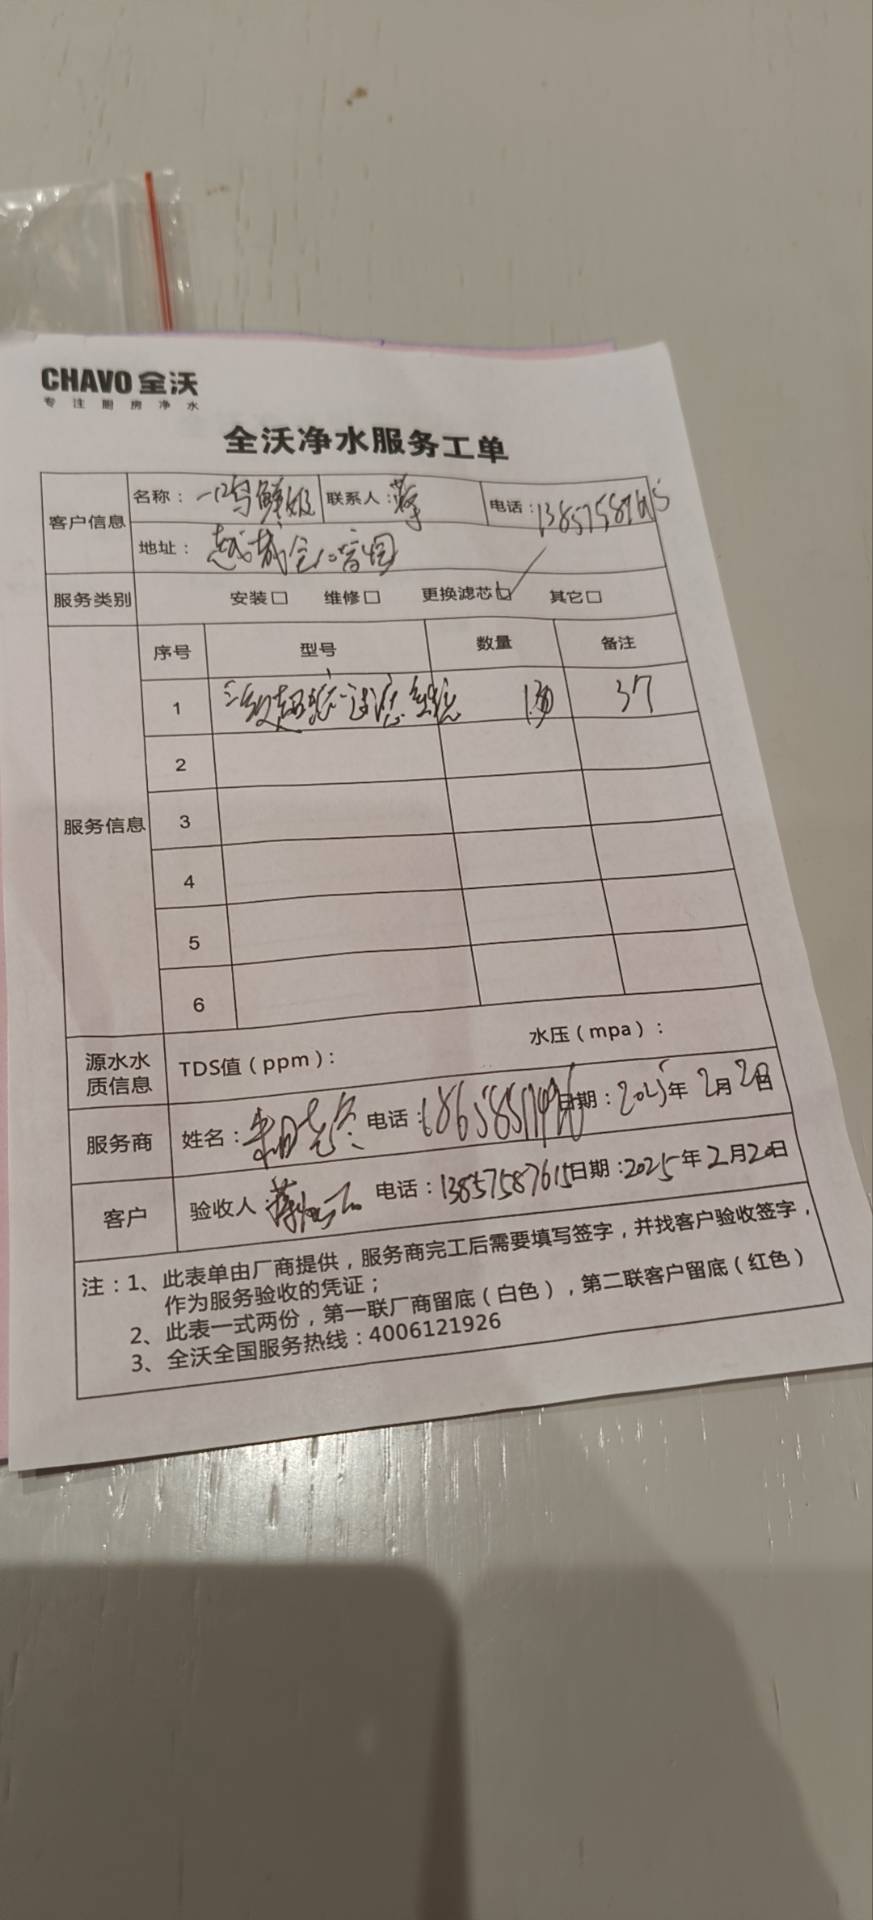 CHAVO 全沃
专注厨房净水
全沃净水服务工单
客户信息 名称：一鸣鲜奶 联系人：蒋 电话：13857587615
地址：越城
服务类别 安装□ 维修□ 更换滤芯□ 其它□
序号 型号 数量 备注
服务信息
1 37
2
3
4
5
6
源水水质信息 TDS值（ppm）： 水压（mpa）：
服务商 姓名： 电话： 日期：2025年2月20日
客户 验收人：蒋 电话：13857587615 日期：2025年2月20日
注：1、此表单由厂商提供，服务商完工后需要填写签字，并找客户验收签字，
作为服务验收的凭证；
2、此表一式两份，第一联厂商留底（白色），第二联客户留底（红色）
3、全沃全国服务热线：4006121926